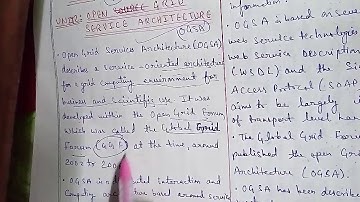 UNIT: OPEN GRID
SERVICE ARCHITECTURE
(OGSA)
• Open Grid Services Architecture (OGSA)
describe a service-oriented architecture
for a grid computing environment for
business and scientific use. It was
developed within the Open Grid Forum,
which was called the Global Grid
Forum (GGF) at the time, around
2002 to
• OGSA is a distributed interaction and
Computing architecture based around service
information.
• OGSA is based on
web service technologies
web service Description
(WSDL) and the
Access Protocol (SOAP
aims to be largely
of transport level
• The Global Grid Forum
published the open Grid
Architecture (OGSA).
• OGSA has been described